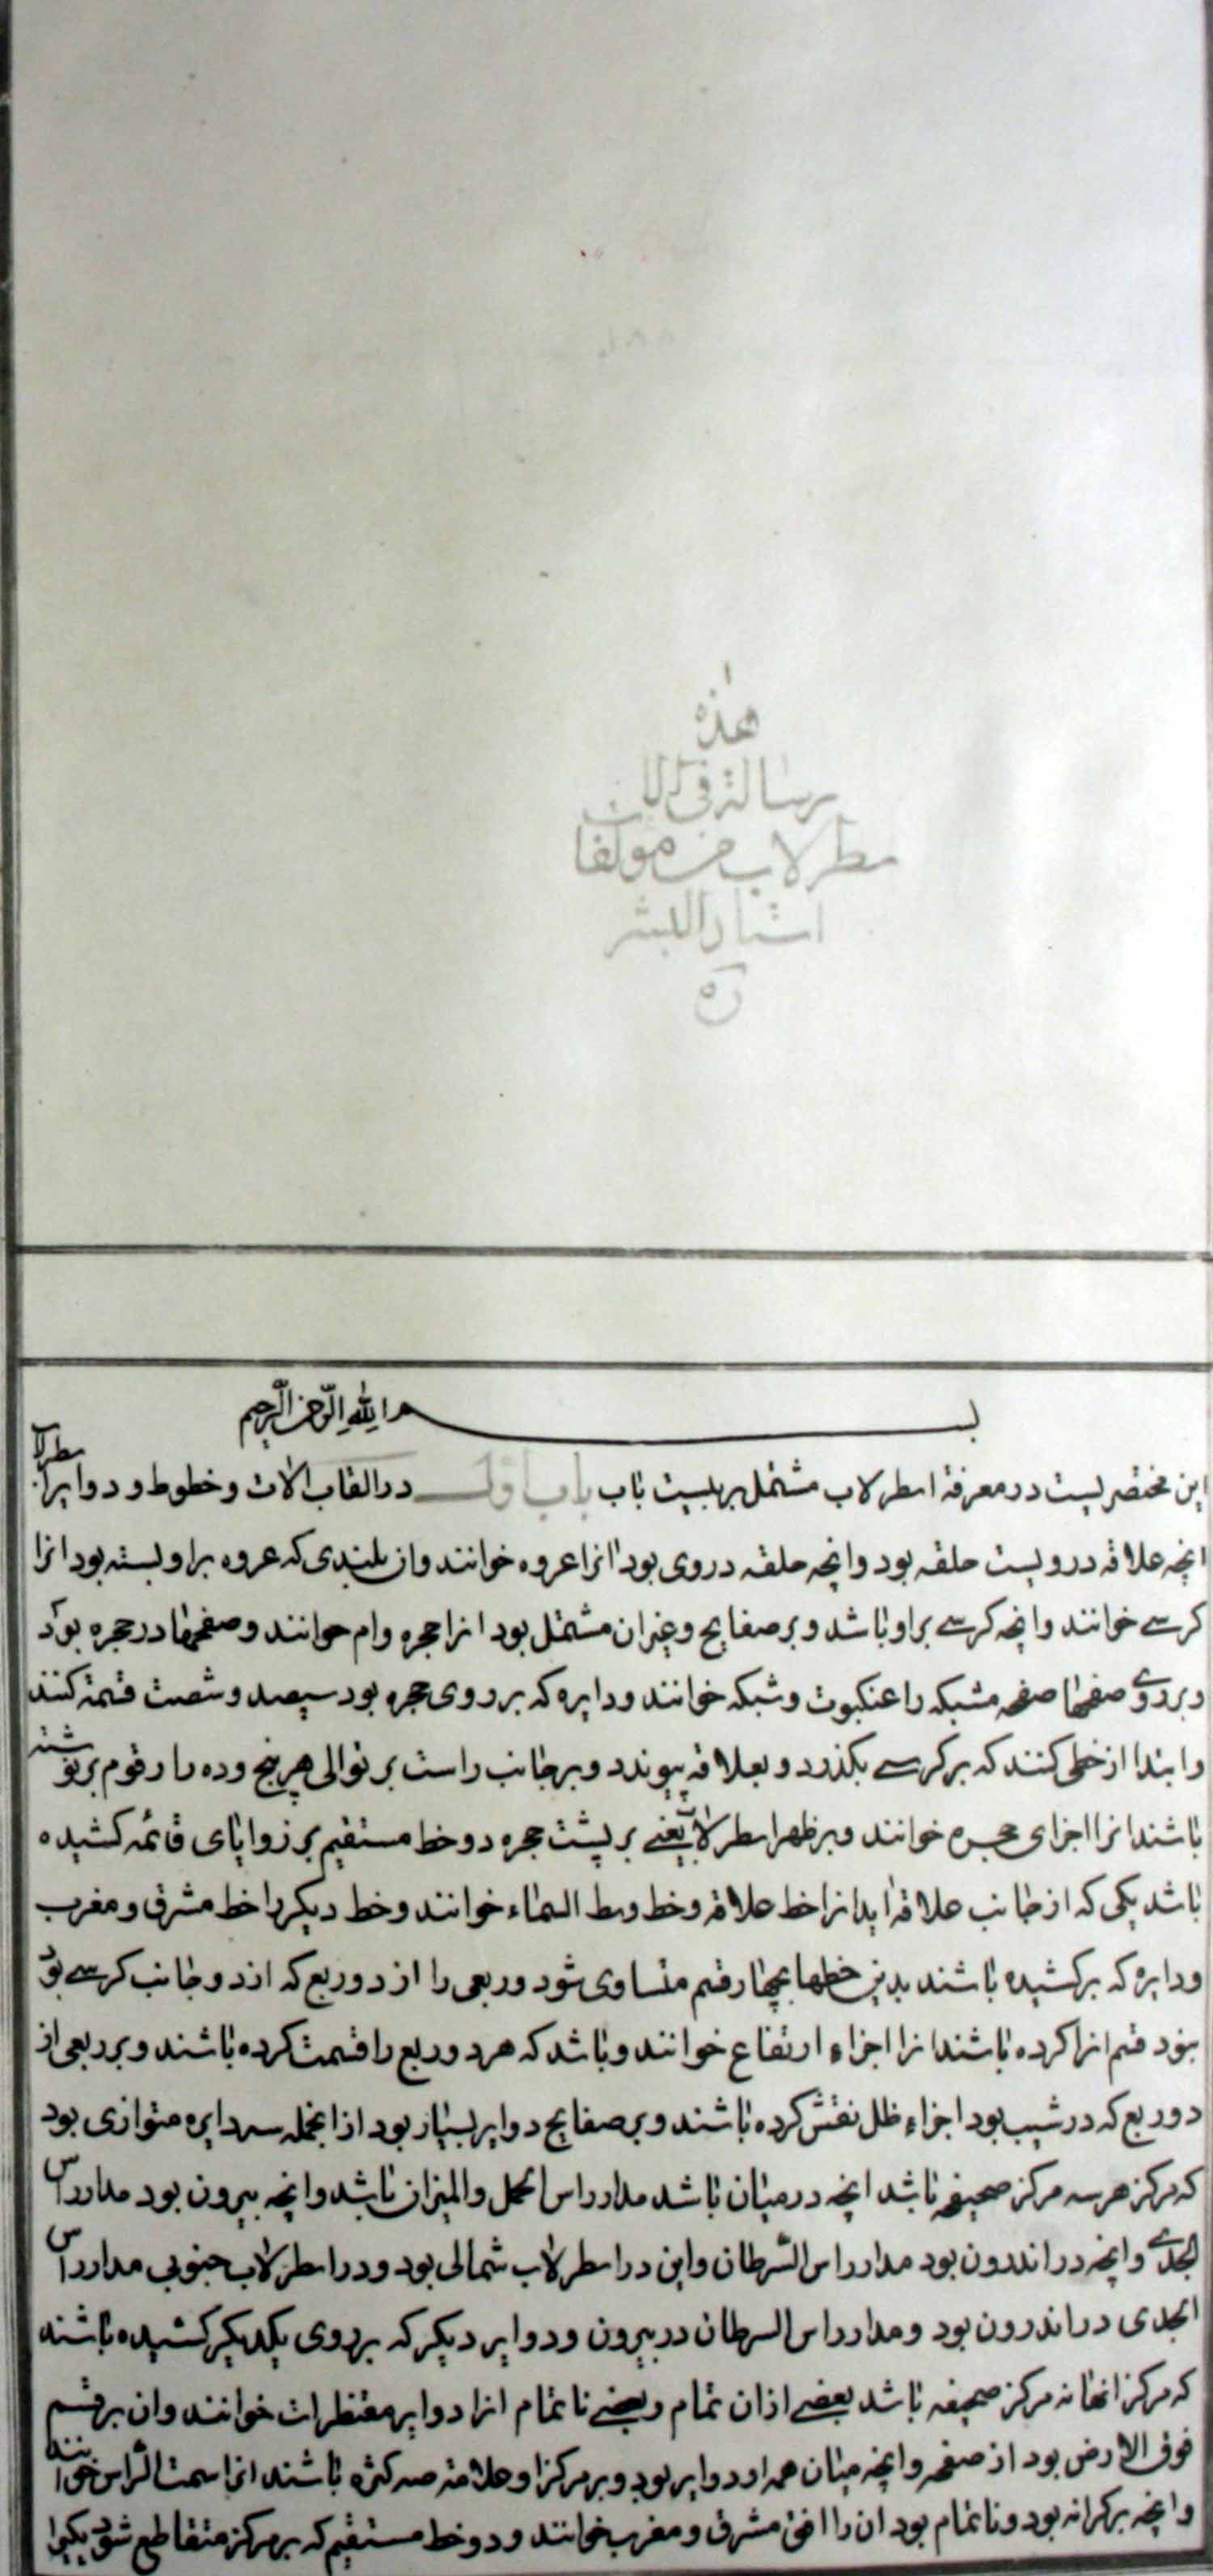 هذه
رسالة فی الات
مطرلاب من مولفا
استاد البشر
ره
بسم الله الرحمن الرحیم
این مختصریست در معرفة اسطرلاب مشتمل بر بیست باب باب اول در القاب الات و خطوط و دوایر اسطرلا
انچه علاقه درو بست حلقه بود و انچه حلقه در وی بود انرا عروه خوانند وان بلندی که عروه بر او بسته بود انرا
کرسے خوانند و انچه کرسے بر او باشد و بر صفایح و غیران مشتمل بود انرا حجره و ام خوانند و صفحها در حجره بود
و بر روے صفحها صفحه مشبکه را عنکبوت و شبکه خوانند و دایره که بر روی حجره بود سیصد و شصت قسمة کنند
و ابتدا از خطی کنند که بر کرسے بکذرد و بعلاقه پیوندد و بر جانب راست بر توالی هر پنج و ده را رقوم بر نوشته
باشند انرا اجزای حجره خوانند و بر ظهر اسطرلاب یعنے بر پشت حجره دو خط مستقیم بر زوایای قائمه کشیده
باشد یکی که از جانب علاقه اید انرا خط علاقه و خط وسط السماء خوانند و خط دیکر را خط مشرق و مغرب
و دایره که برکشیده باشند بدین خطها بچهار قسم متساوی شود و ربعی را از دو ربع که از دو جانب کرسے بود
بنود قسم انرا کرده باشند انرا اجزاء ارتفاع خوانند و باشد که هر دو ربع را قسمت کرده باشند و بر ربعی از
دو ربع که در شیب بود اجزاء ظل نقش کرده باشند و بر صفایح دوایر بسیار بود از انجمله سه دایره متوازی بود
که مرکز هر سه مرکز صحیفه باشد انچه در میان باشد مدار راس الحمل و المیزان باشد و انچه بیرون بود مدار راس
الجدے و انچه در اندرون بود مدار راس السرطان و این در اسطرلاب شمالی بود و در اسطرلاب جنوبی مدار راس
الجدی در اندرون بود و مدار راس السرطان در بیرون و دوایر دیکر که بر روی یکدیکر کشیده باشند
که مرکز انها نه مرکز صحیفه باشد بعضے ازان تمام و بعضے نا تمام انرا دوایر مقنطرات خوانند و ان بر قسم
فوق الارض بود از صفحه و انچه میان همه او دوایر بود و بر مرکز او علامة صه کرده باشند انرا سمت الراس خوانند
و انچه بر کرانه بود و نا تمام بود ان را افق مشرق و مغرب خوانند و دو خط مستقیم که بر مرکز متقاطع شود یکیرا